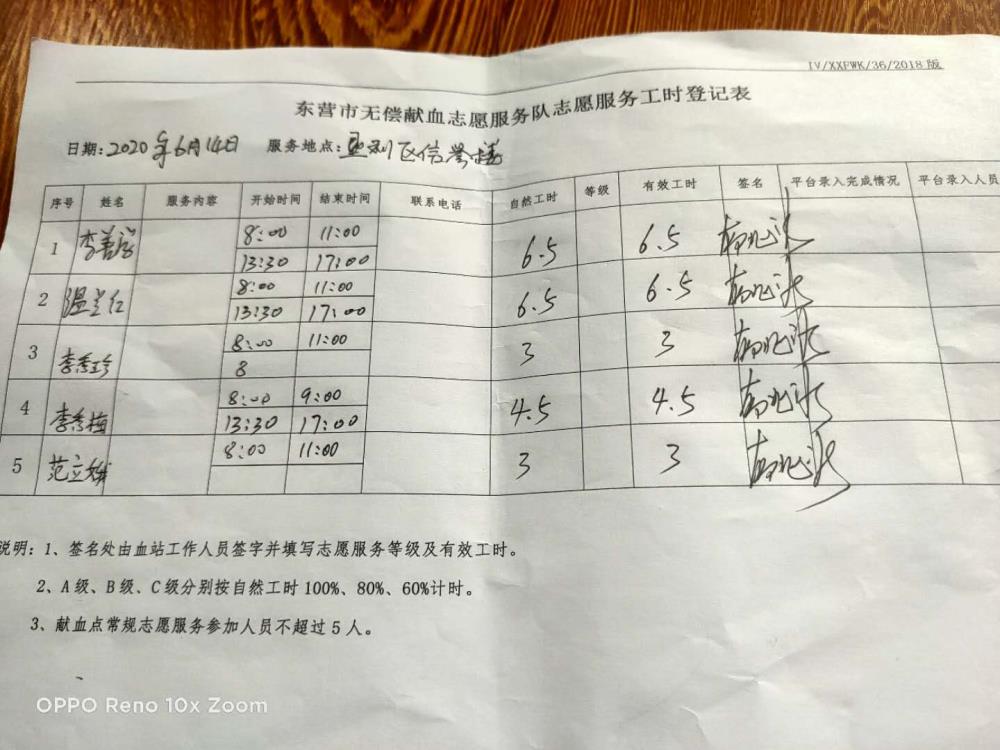 IV/XXFWK/36/2018版
东营市无偿献血志愿服务队志愿服务工时登记表
日期:2020年6月14日 服务地点:垦利区信誉楼
序号 姓名 服务内容 开始时间 结束时间 联系电话 自然工时 等级 有效工时 签名 平台录入完成情况 平台录入人员
1 李善 8:00 11:00 6.5 6.5
13:30 17:00
2 温兰红 8:00 11:00 6.5 6.5
13:30 17:00
3 李秀珍 8:00 11:00 3 3
8
4 李秀梅 8:00 9:00 4.5 4.5
13:30 17:00
5 范立娥 8:00 11:00 3 3
说明:1、签名处由血站工作人员签字并填写志愿服务等级及有效工时。
2、A级、B级、C级分别按自然工时100%、80%、60%计时。
3、献血点常规志愿服务参加人员不超过5人。
OPPO Reno 10x Zoom